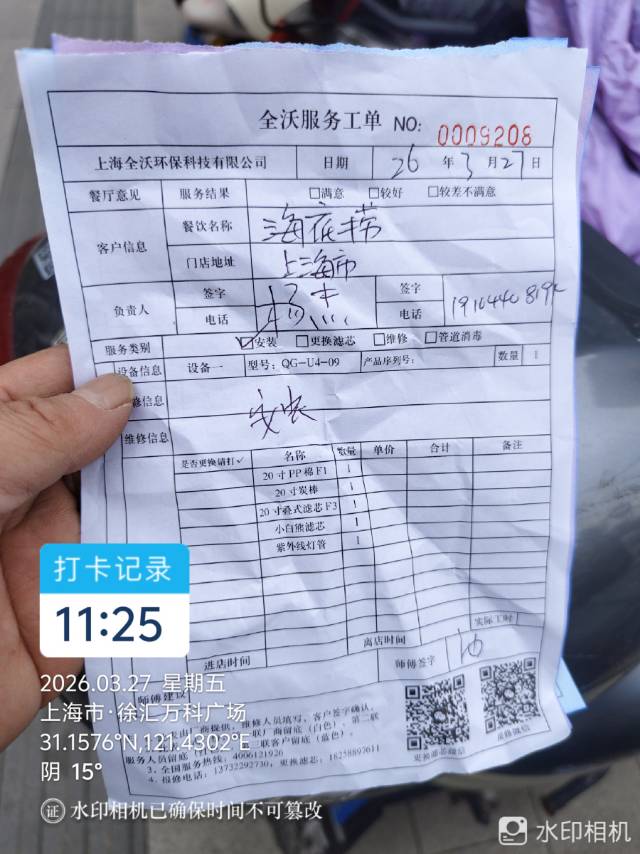 全沃服务工单 NO: 0009208
上海全沃环保科技有限公司 日期 26 年 3 月 27 日
餐厅意见 服务结果 □满意 □较好 □较差不满意
客户信息 餐饮名称 海底捞
门店地址 上海市
负责人 签字 签字
电话 电话
服务类别 ☑安装 □更换滤芯 □维修 □管道消毒
设备信息 设备一 型号: QG-U4-09 产品序列号: 数量 1
修信息 安装
维修信息
是否更换请打✓ 名称 数量 单价 合计 备注
20寸PP棉F1 1
20寸炭棒 1
20寸叠式滤芯F3 1
小白熊滤芯 1
紫外线灯管 1
实际工时
进店时间 离店时间
师傅建议 师傅签字
厂商提供, 维修人员填写, 客户签字确认。
服务人员留底 厂商留底(白色)、第二联
三联客户留底(蓝色)。
3、全国服务热线: 4006121926
4、报修电话: 13732292730, 更换滤芯: 18258897011
打卡记录
11:25
2026.03.27 星期五
上海市·徐汇万科广场
31.1576°N,121.4302°E
阴 15°
证 水印相机已确保时间不可篡改
水印相机